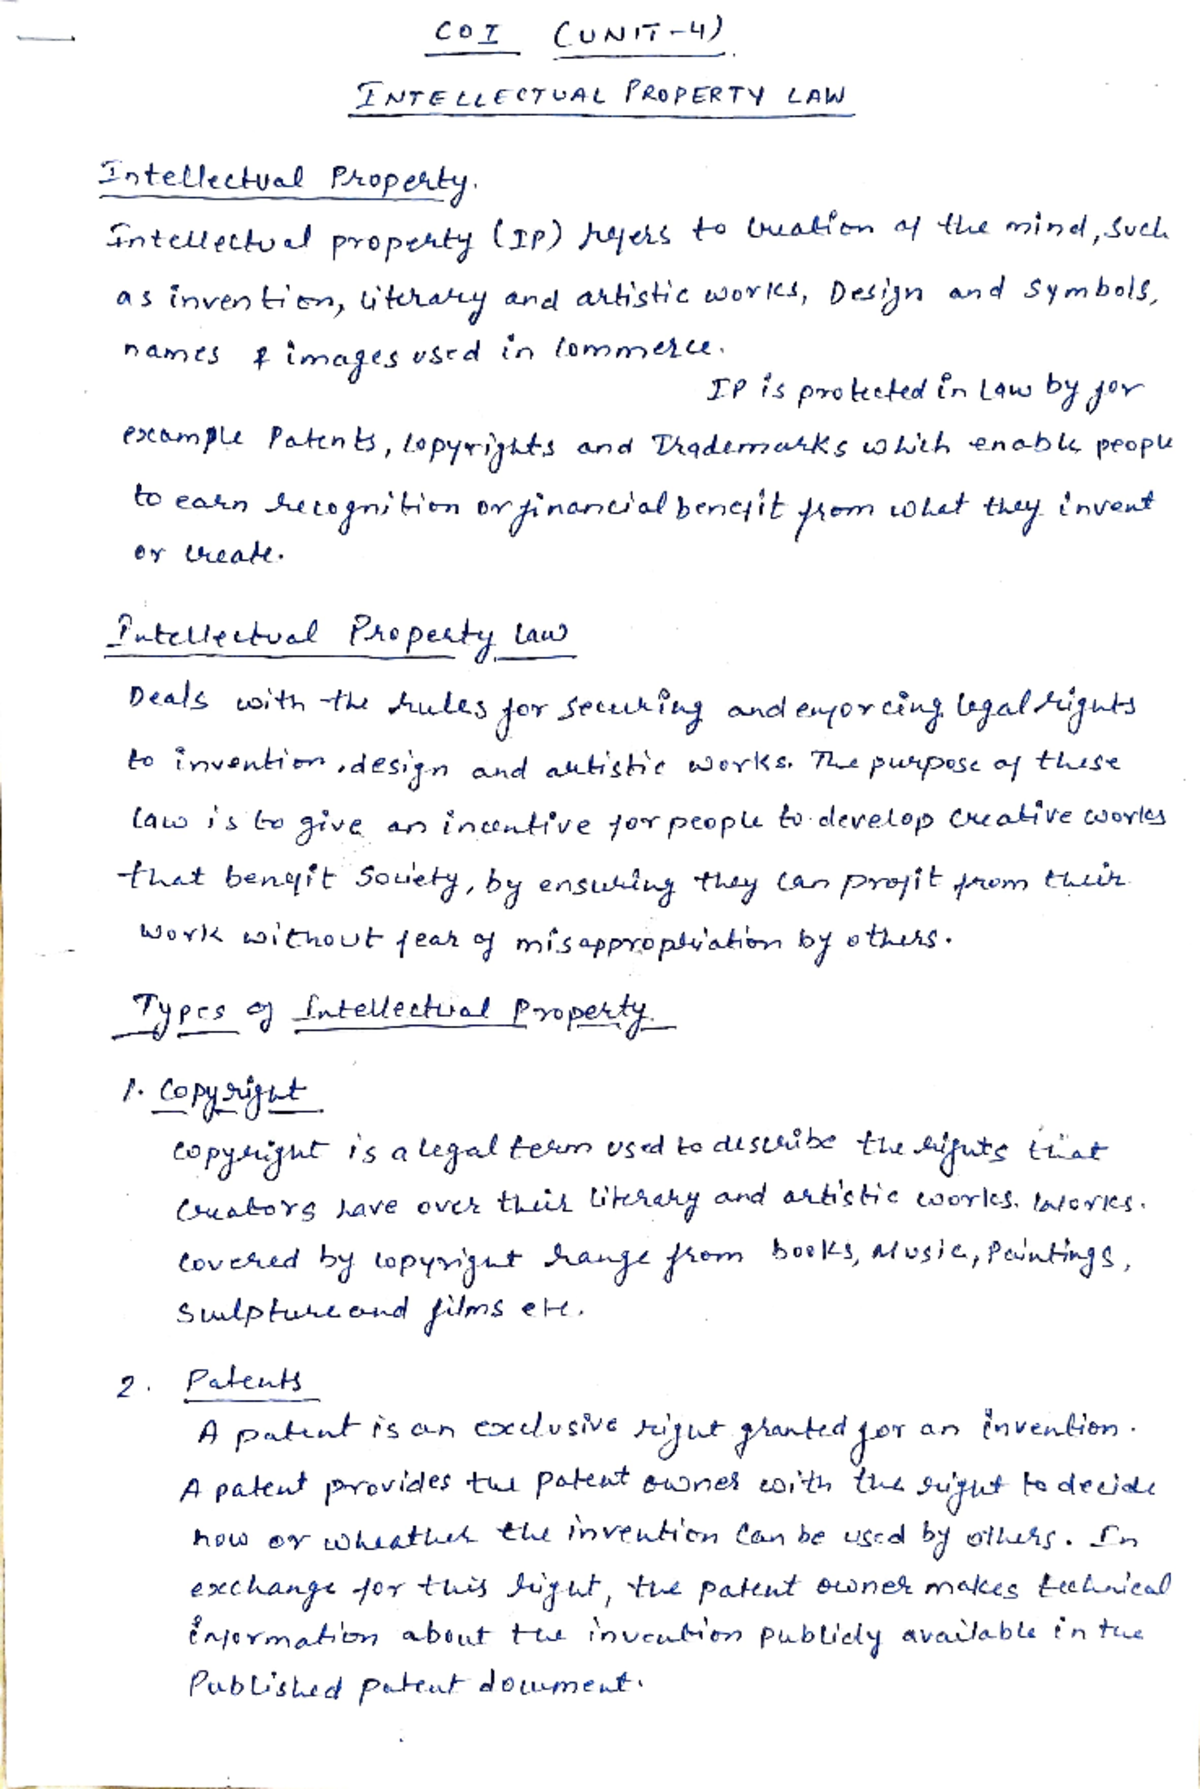 COI (UNIT-4)
INTELLECTUAL PROPERTY LAW
Intellectual Property.
Intellectual property (IP) refers to creation of the mind, such
as invention, literary and artistic works, Design and Symbols,
names & images used in commerce.
IP is protected in Law by for
example Patents, copyrights and Trademarks which enable people
to earn recognition or financial benefit from what they invent
or create.
Intellectual Property Law
Deals with the rules for securing and enforcing legal rights
to invention, design and artistic works. The purpose of these
law is to give an incentive for people to develop creative works
that benefit Society, by ensuring they can profit from their
work without fear of misappropriation by others.
Types of Intellectual Property.
1. Copyright
Copyright is a legal term used to describe the rights that
creators have over their literary and artistic works. Works.
covered by copyright range from books, Music, Paintings,
Sculpture and films etc.
2. Patents
A patent is an exclusive right granted for an invention.
A patent provides the patent owner with the right to decide
how or wheather the invention can be used by others. In
exchange for this right, the patent owner makes technical
information about the invention publicly available in the
Published patent document.